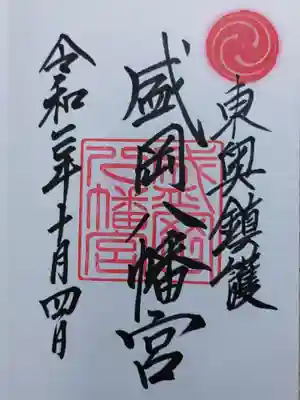 東奥鎮護
盛岡八幡宮
令和二年十月四日